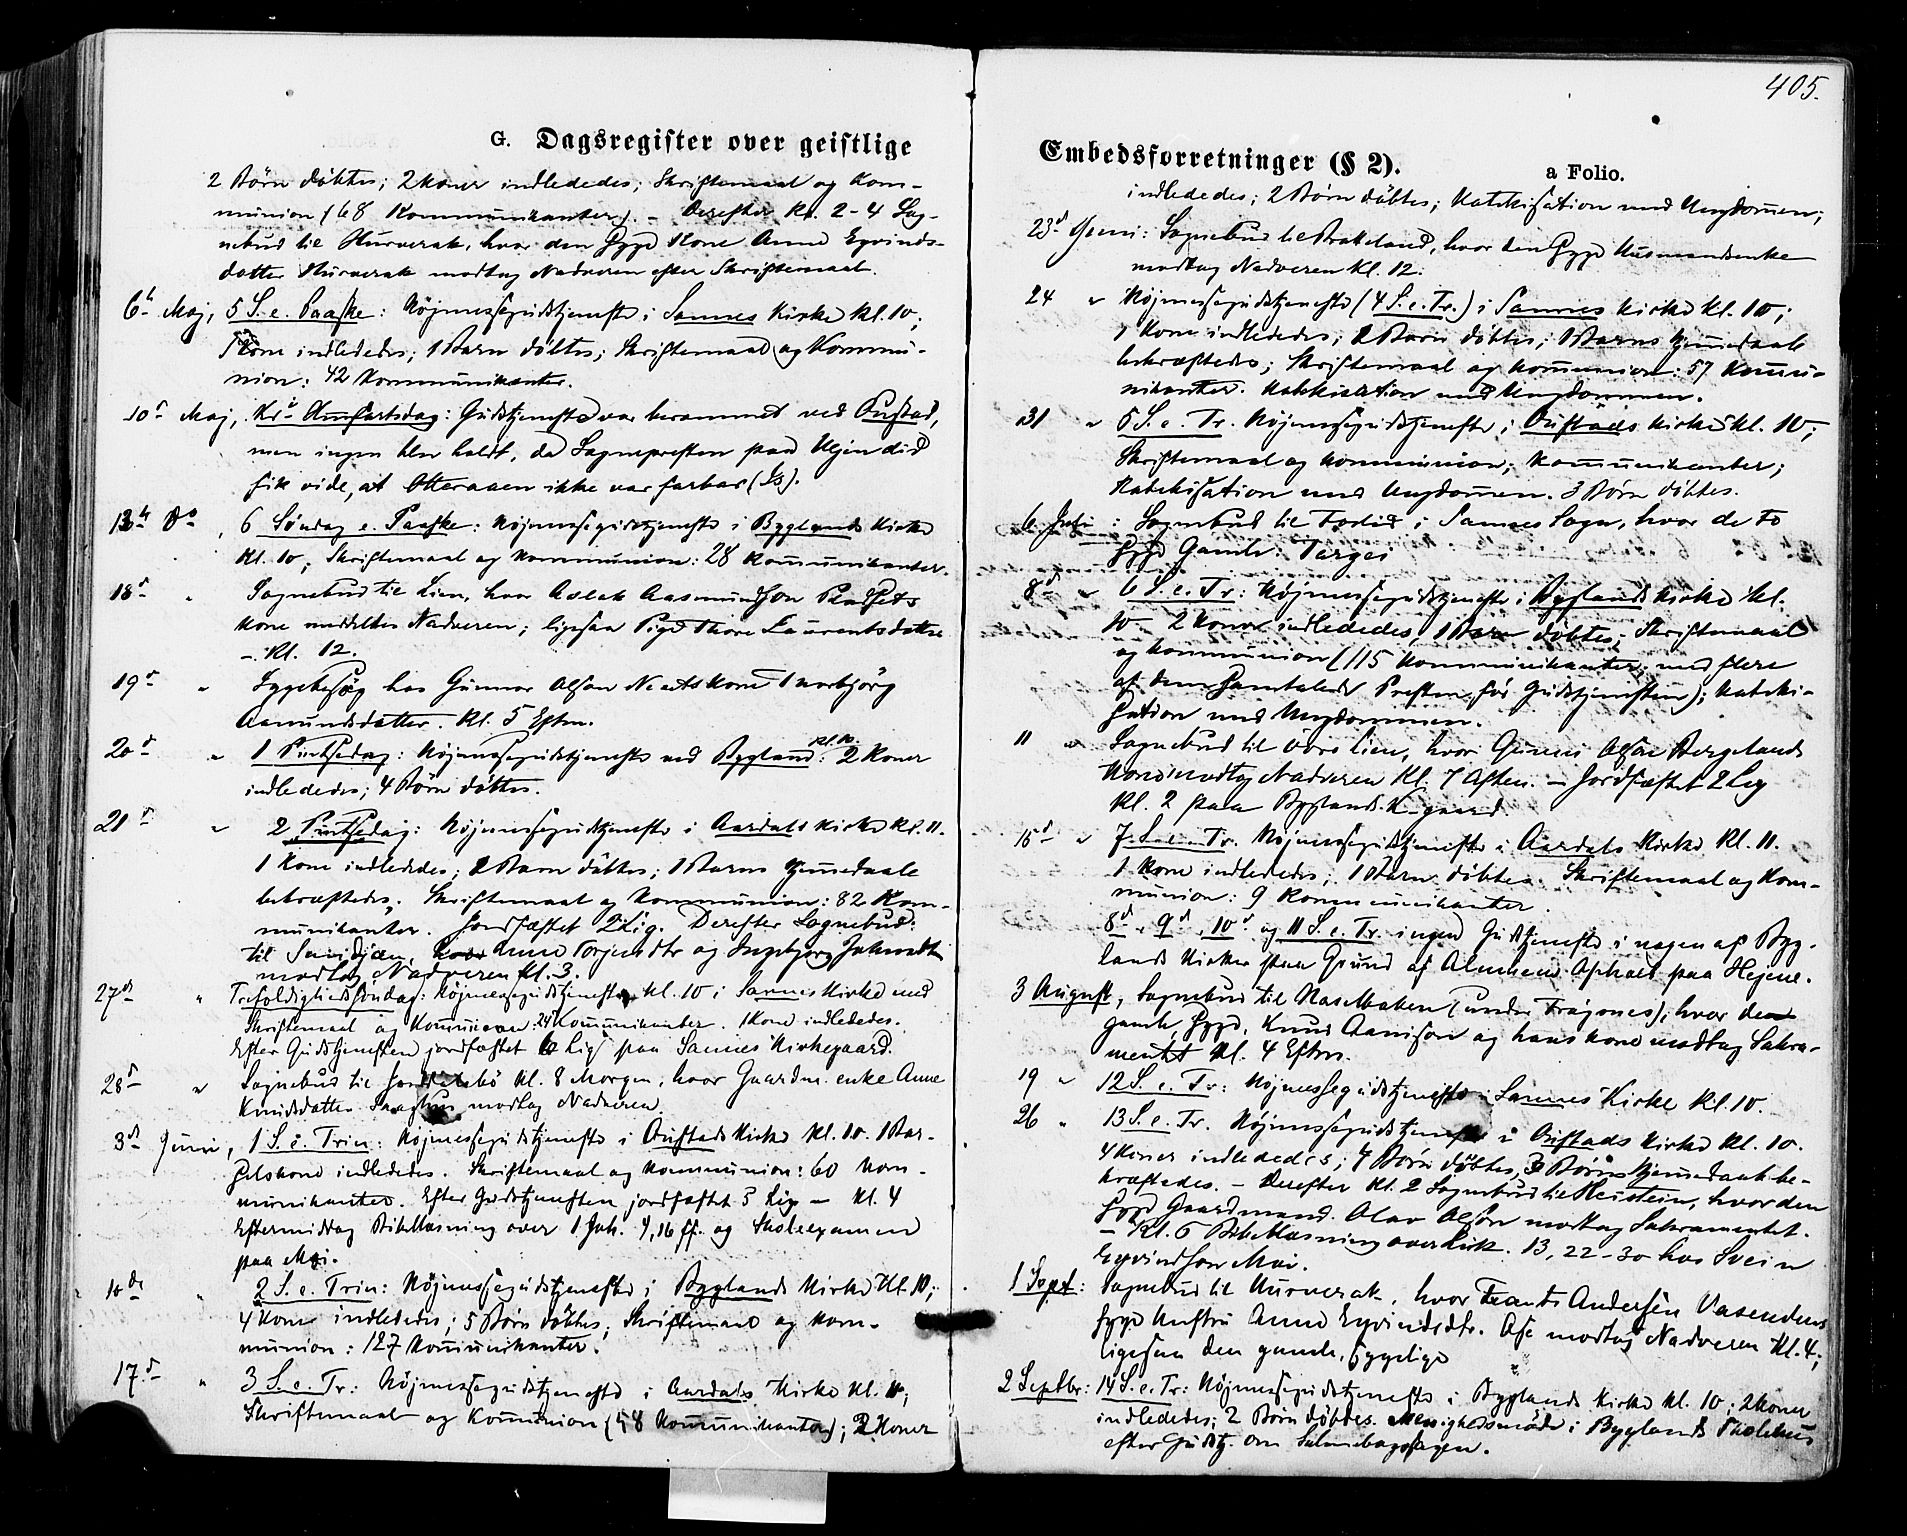 G. Dagsregister over geistlige
2 Børn døbtes; 2 Koner indlededes; Skriftemaal og Kom-
munion (68 Kommunikanter). - Derefter Kl. 2-4 Sog-
nebud til Hurverak, hvor den syge Kone Anne Eyvinds-
datter Hurverak modtog Nadveren efter Skriftemaal.
6te Maj, 5 S. e. Paaske: Højmessegudstjeneste i Sannes Kirke Kl. 10;
Kone indlededes; 1 Barn døbtes; Skriftemaal og Kommu-
nion: 42 Kommunikanter.
10d Maj, Kri Himfartsdag: Gudstjeneste var berammet ved Austad,
men ingen blev holdt, da Sognepresten paa Vejen did
fik vide, at Otteraaen ikke var farbar (Is).
13de Do, 6 Søndag e. Paaske: Højmessegudstjeneste i Byglands Kirke
Kl. 10; Skriftemaal og Kommunion: 28 Kommunikanter.
18d " Sognebud til Lien, hvor Aslak Aasmundson
Kone meddeltes Nadveren; ligesaa Pige Thore Laurentsdatter
-. Kl. 12.
19d " Sygebesøg hos Gunnar Olson Kone Thorbjörg
Aamundsdatter. Kl. 5 Eftm.
20d " 1 Pintsedag: Højmessegudstjeneste ved Bygland Kl. 10: 2 Koner
indlededes; 4 Børn døbtes.
21d " 2 Pintsedag: Højmessegudstjeneste i Aardals Kirke Kl. 11.
1 Kone indlededes; 2 Barn døbtes; 1 Barns Hjemmedaab
bekræftedes; Skriftemaal og Kommunion: 82 Kom-
munikanter. Jordfæstet 2 Lig. Derefter Sognebud
til Anne Torjusdtr og Ingebjorg
modtog Nadveren Kl. 3.
27d " Trefoldighedssøndag: Højmessegudstjeneste Kl. 10 i Sannes Kirke med
Skriftemaal og Kommunion: 24 Kommunikanter. 1 Kone indlededes.
Efter Gudstjenesten jordfæstet 6 Lig paa Sannes Kirkegaard.
28d " Sognebud til Kl. 8 Morgen, hvor Gaardm. enke Anne
Knudsdatter modtog Nadveren.
3d Juni, 1 S. e. Trin: Højmessegudstjeneste i Austads Kirke Kl. 10. 1 Bar-
selskone indlededes. Skriftemaal og Kommunion: 60 Kom-
munikanter. Efter Gudstjenesten jordfæstet 3 Lig - Kl. 4
Eftermiddag Bibellæsning over 1 Joh. 4,16 ff. og Skoleexamen
paa Moi.
10de " 2 S. e. Trin: Højmessegudstjeneste i Byglands Kirke Kl. 10;
4 Koner indlededes; 5 Børn døbtes; Skriftemaal og Kom-
munion: 127 Kommunikanter.
17d " 3 S. e. Tr: Højmessegudstjeneste i Aardals Kirke Kl. 11;
Skriftemaal og Kommunion (58 Kommunikanter); 2 Koner
405.
Embedsforretninger (§ 2).
a Folio.
indlededes; 2 Børn døbtes; Katekisation med Ungdommen;
23d Juni: Sognebud til Brakeland, hvor den syge Husmandsenke
modtog Nadveren Kl. 12.
24 " Højmessegudstjeneste (4 S. e. Tr.) i Sannes Kirke Kl. 10;
1 Kone indlededes; 2 Barn døbtes; 1 Barns Hjemmedaab
bekræftedes; Skriftemaal og Kommunion: 57 Kommu-
nikanter. Katekisation med Ungdommen.
31 " 5 S. e. Tr. Højmessegudstjeneste i Austads Kirke Kl. 10;
Skriftemaal og Kommunion; Kommunikanter;
Katekisation med Ungdommen. 3 Børn døbtes.
6 Juli: Sognebud til i Sannes Sogn, hvor de to
syge Gamle Targei
8d " 6 S. e. Tr: Højmessegudstjeneste i Byglands Kirke Kl.
10 - 2 Koner indlededes, 1 Barn døbtes; Skriftemaal
og Kommunion (115 Kommunikanter, med flere
af dem samtalede Presten før Gudstjenesten); Kateki-
sation med Ungdommen.
11 " Sognebud til Lien, hvor Olson Bergelands
Kone modtog Nadveren Kl. 7 Aften. - Jordfæstet 2 Lig
Kl. 2 paa Byglands K-gaard
15d " 7 S. e. Tr. Højmessegudstjeneste i Aardals Kirke Kl. 11.
1 Kone indlededes; 1 Barn døbtes. Skriftemaal og Kom-
munion: 9 Kommunikanter.
8d, 9d, 10d og 11 S. e. Tr. ingen Gudstjeneste i nogen af Byg-
lands Kirker paa Grund af Almuens Ophold paa Hejene.
3 August, Sognebud til Nasebakken (under Frøjsnes), hvor den
gamle, syge, Knud Aanison og hans Kone modtog Sakra-
mentet Kl. 4 Eftm.
19 " 12 S. e. Tr: Højmessegudstjeneste i Sannes Kirke Kl. 10.
26 " 13 S. e. Tr. Højmessegudstjeneste i Austads Kirke Kl. 10.
4 Koner indlededes; 4 Børn døbtes, 3 Børns Hjemmedaab be-
kræftedes. - Derefter Kl. 2 Sognebud til , hvor den
syge Gaardmand Olav Olson modtog Sakramentet.
- Kl. 6 Bibellæsning over Luk. 13, 22-30 hos Svein
Eyvindson Moi.
1 Sept: Sognebud til Hurverak, hvor Andersen Vasendens
syge Hustru Anne Eyvindsdtr. modtog Nadveren Kl. 4;
ligesaa den gamle, sygelige
2 Septbr: 14 S. e. Tr: Højmessegudstjeneste i Byglands Kirke Kl. 10; 2 Koner
indlededes; 2 Børn døbtes. Menighedsmøde i Byglands Skolehus
efter Gudstj. om Salmebogssagen.